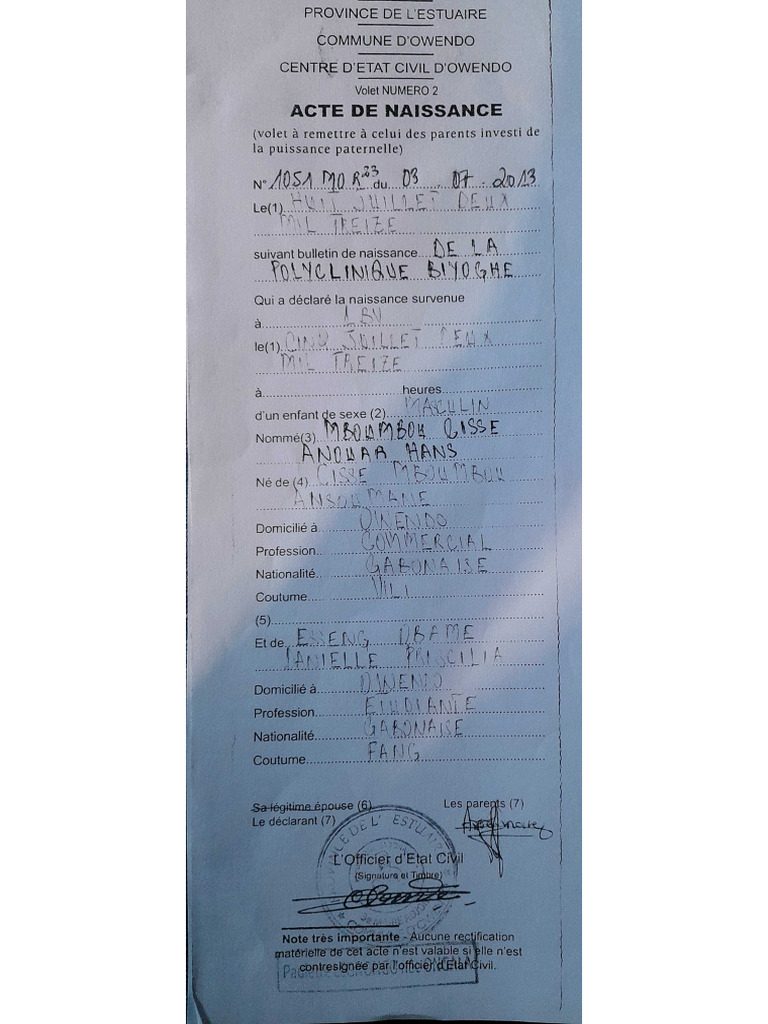 PROVINCE DE L'ESTUAIRE
COMMUNE D'OWENDO
CENTRE D'ETAT CIVIL D'OWENDO
Volet NUMERO 2
ACTE DE NAISSANCE
(volet à remettre à celui des parents investi de
la puissance paternelle)
N° 1051 MO R23 du 03 07 2013
Le(1) HUIT JUILLET DEUX
MIL TREIZE
suivant bulletin de naissance DE LA
POLYCLINIQUE BIYOGHE
Qui a déclaré la naissance survenue
à LBV
le(1) CINQ JUILLET DEUX
MIL TREIZE
à heures
d'un enfant de sexe (2) MASCULIN
Nommé(3) MBOUMBOU CISSE
ANOUAR HANS
Né de (4) CISSE MBOUMBOU
ANSOUMANE
Domicilié à OWENDO
Profession COMMERCIAL
Nationalité GABONAISE
Coutume VILI
(5)
Et de ESSENG OBAME
JANIELLE PRISCILIA
Domicilié à OWENDO
Profession ETUDIANTE
Nationalité GABONAISE
Coutume FANG
Sa légitime épouse (6) Les parents (7)
Le déclarant (7)
DE L'ESTUAIRE
L'Officier d'Etat Civil
(Signature et Timbre)
Note très importante - Aucune rectification
matérielle de cet acte n'est valable si elle n'est
contresignée par l'officier d'Etat Civil.